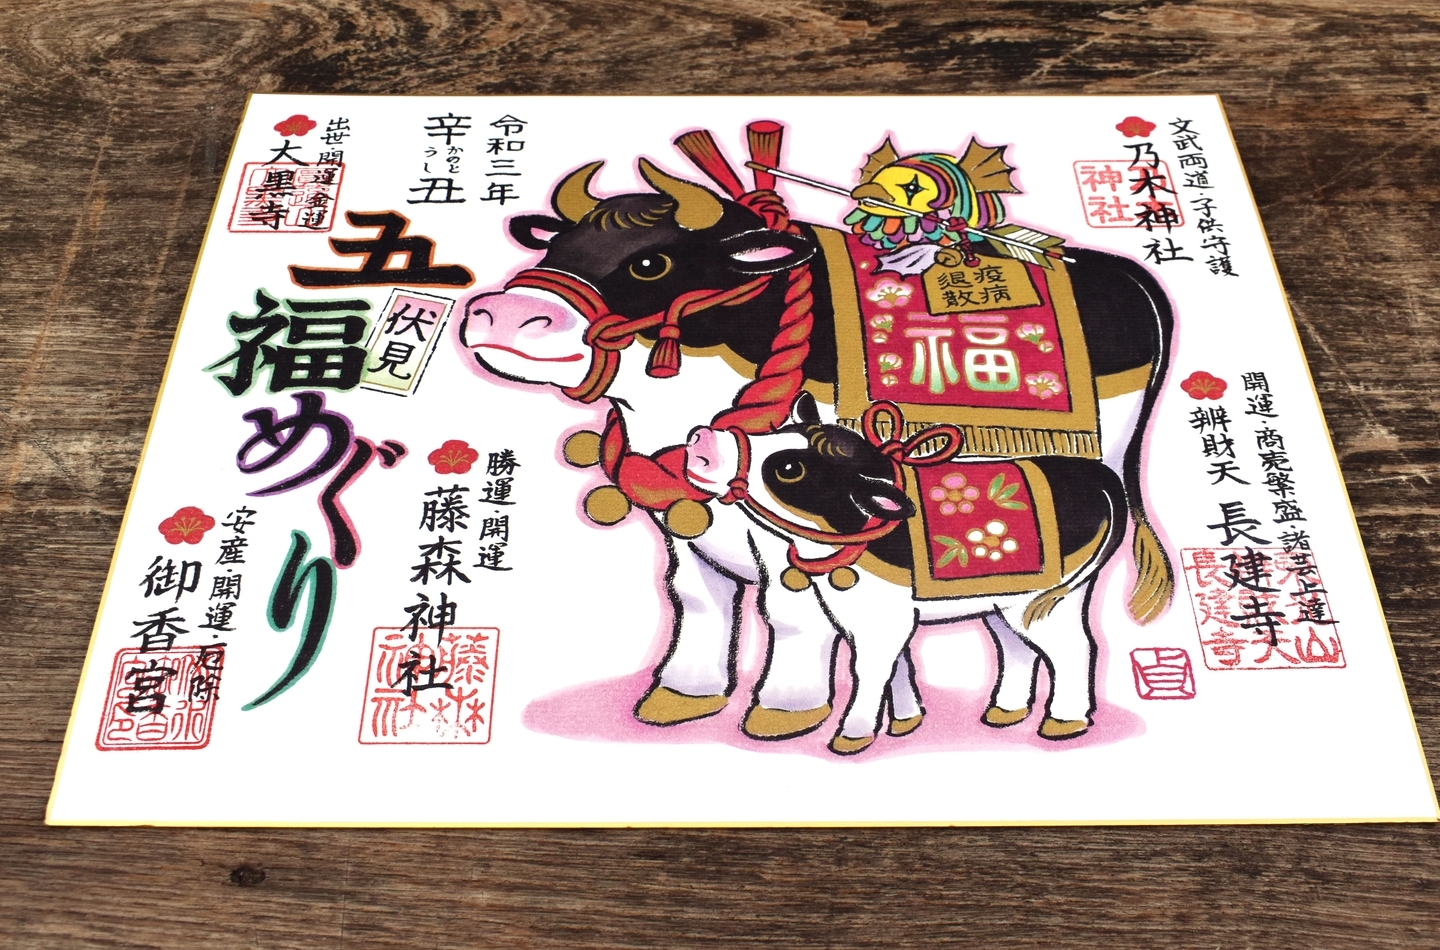 令和三年
辛丑
かのと
うし
五福めぐり
伏見
出世・開運金運
大黒寺
勝運・開運
藤森神社
安産開運・厄除
御香宮
文武両道・子供守護
乃木神社
神社
開運・商売繁盛・諸芸上達
辨財天 長建寺
長建寺
疫病
退散
福
藤森
神社
貞